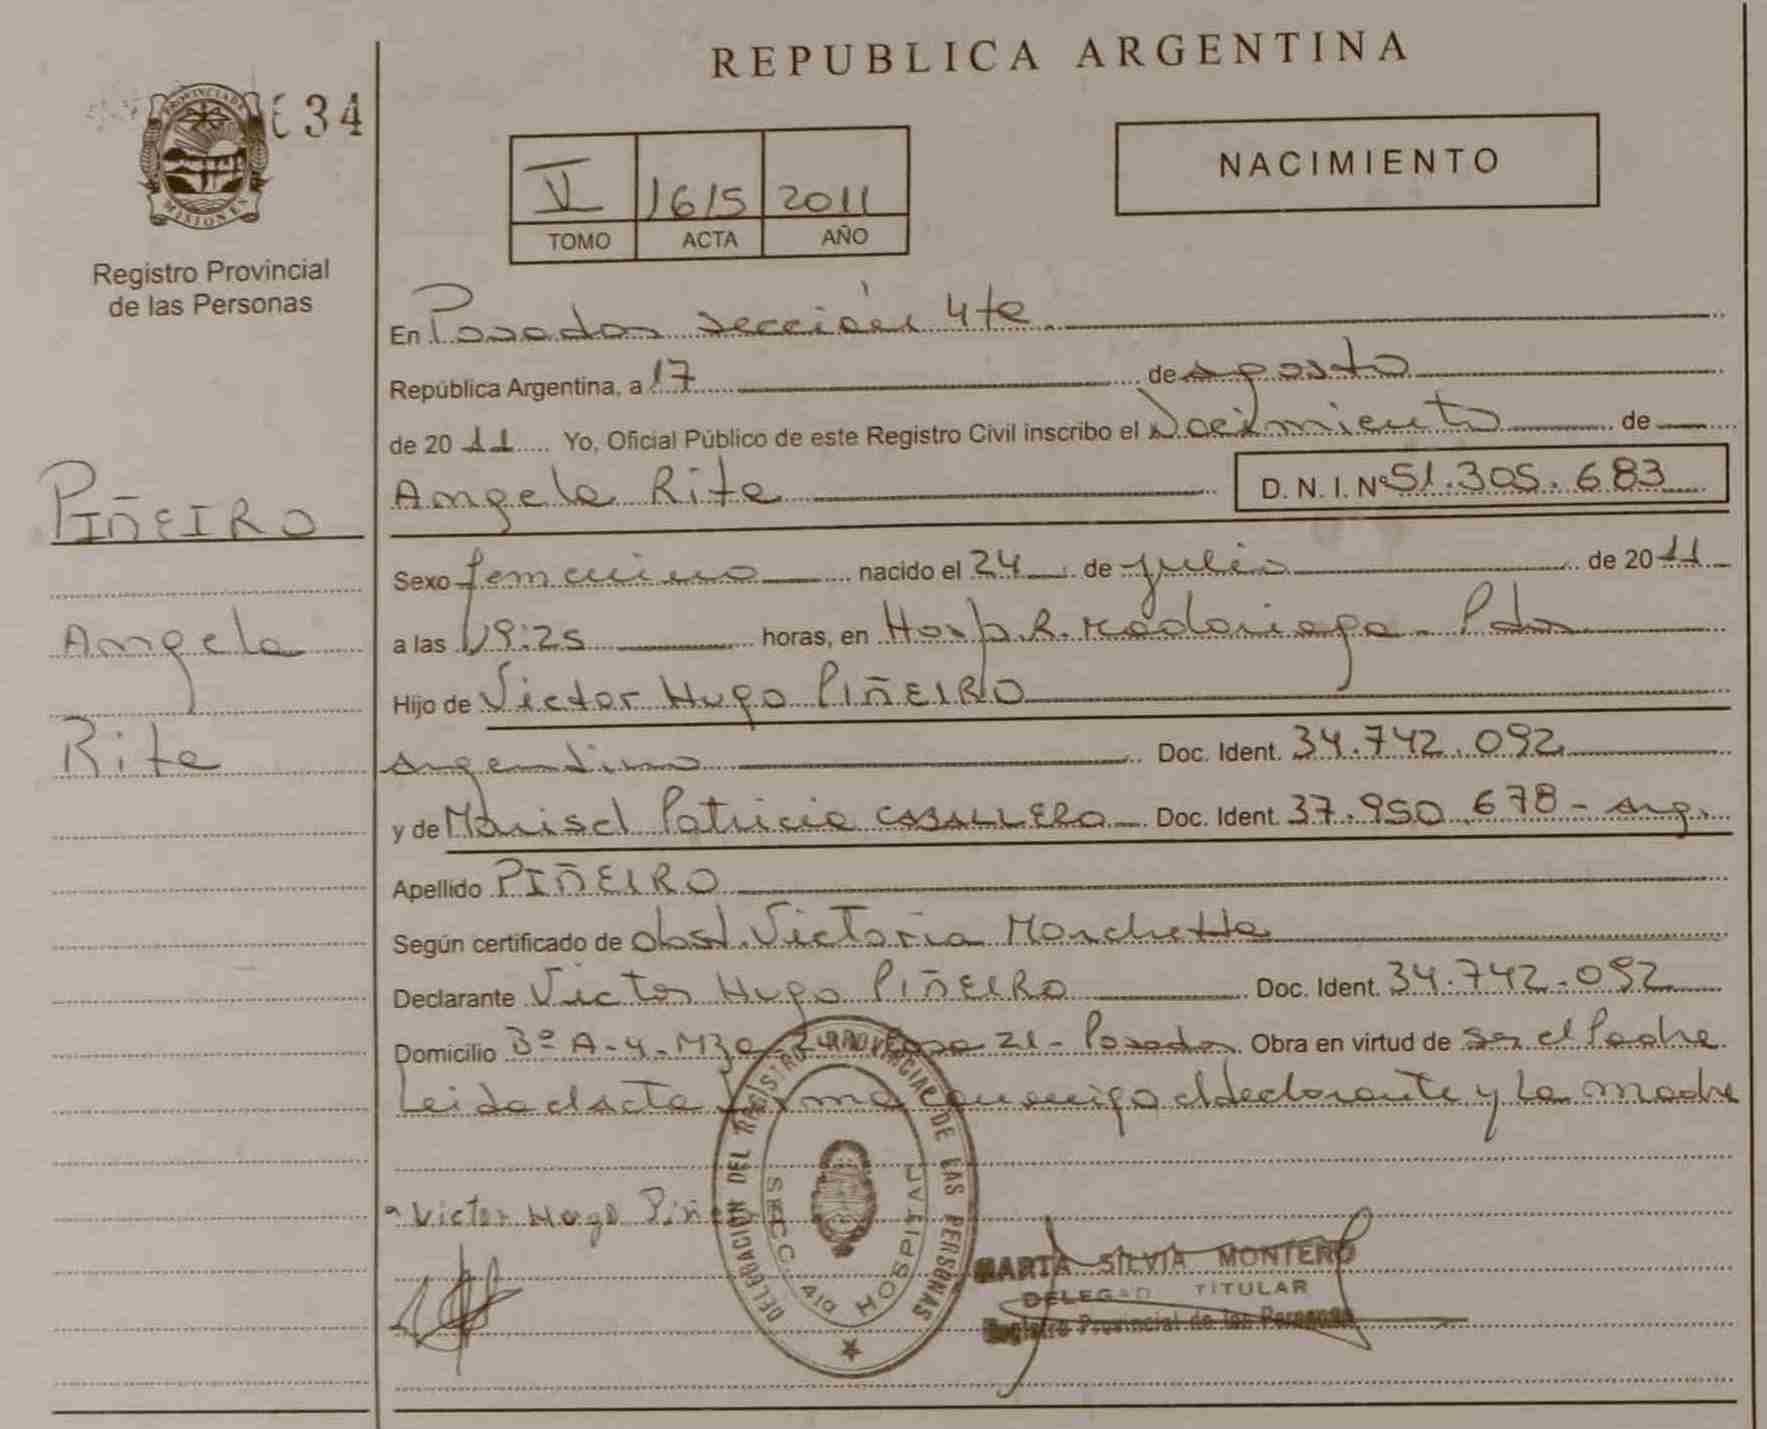 REPUBLICA ARGENTINA
PROVINCIA DE
MISIONES
634
Registro Provincial
de las Personas
V 1615 2011
TOMO ACTA AÑO
NACIMIENTO
En Posadas sección 4ta
República Argentina, a 17 de agosto
de 2011 Yo, Oficial Público de este Registro Civil inscribo el Nacimiento de
Angela Rita D. N. I. Nº 51.305.683
PIÑEIRO
Angela
Rita
Sexo femenino nacido el 24 de julio de 2011
a las 19:25 horas, en Hosp. R. Madariaga - Pdas
Hijo de Victor Hugo PIÑEIRO
argentino Doc. Ident. 34.742.092
y de Marisel Patricia CABALLERO Doc. Ident. 37.950.678 - arg.
Apellido PIÑEIRO
Según certificado de obst. Victoria Marchetta
Declarante Victor Hugo PIÑEIRO Doc. Ident. 34.742.092
Domicilio Bº A-4-Mza casa 21 - Posadas Obra en virtud de ser el Padre
Leida el acta firma conmigo el declarante y la madre
Victor Hugo Piñe
DELEGACION DEL REGISTRO PROVINCIAL DE LAS PERSONAS
SECC. 4ta HOSPITAL
MARTA SILVIA MONTERO
DELEGAD TITULAR
Registro Provincial de las Personas